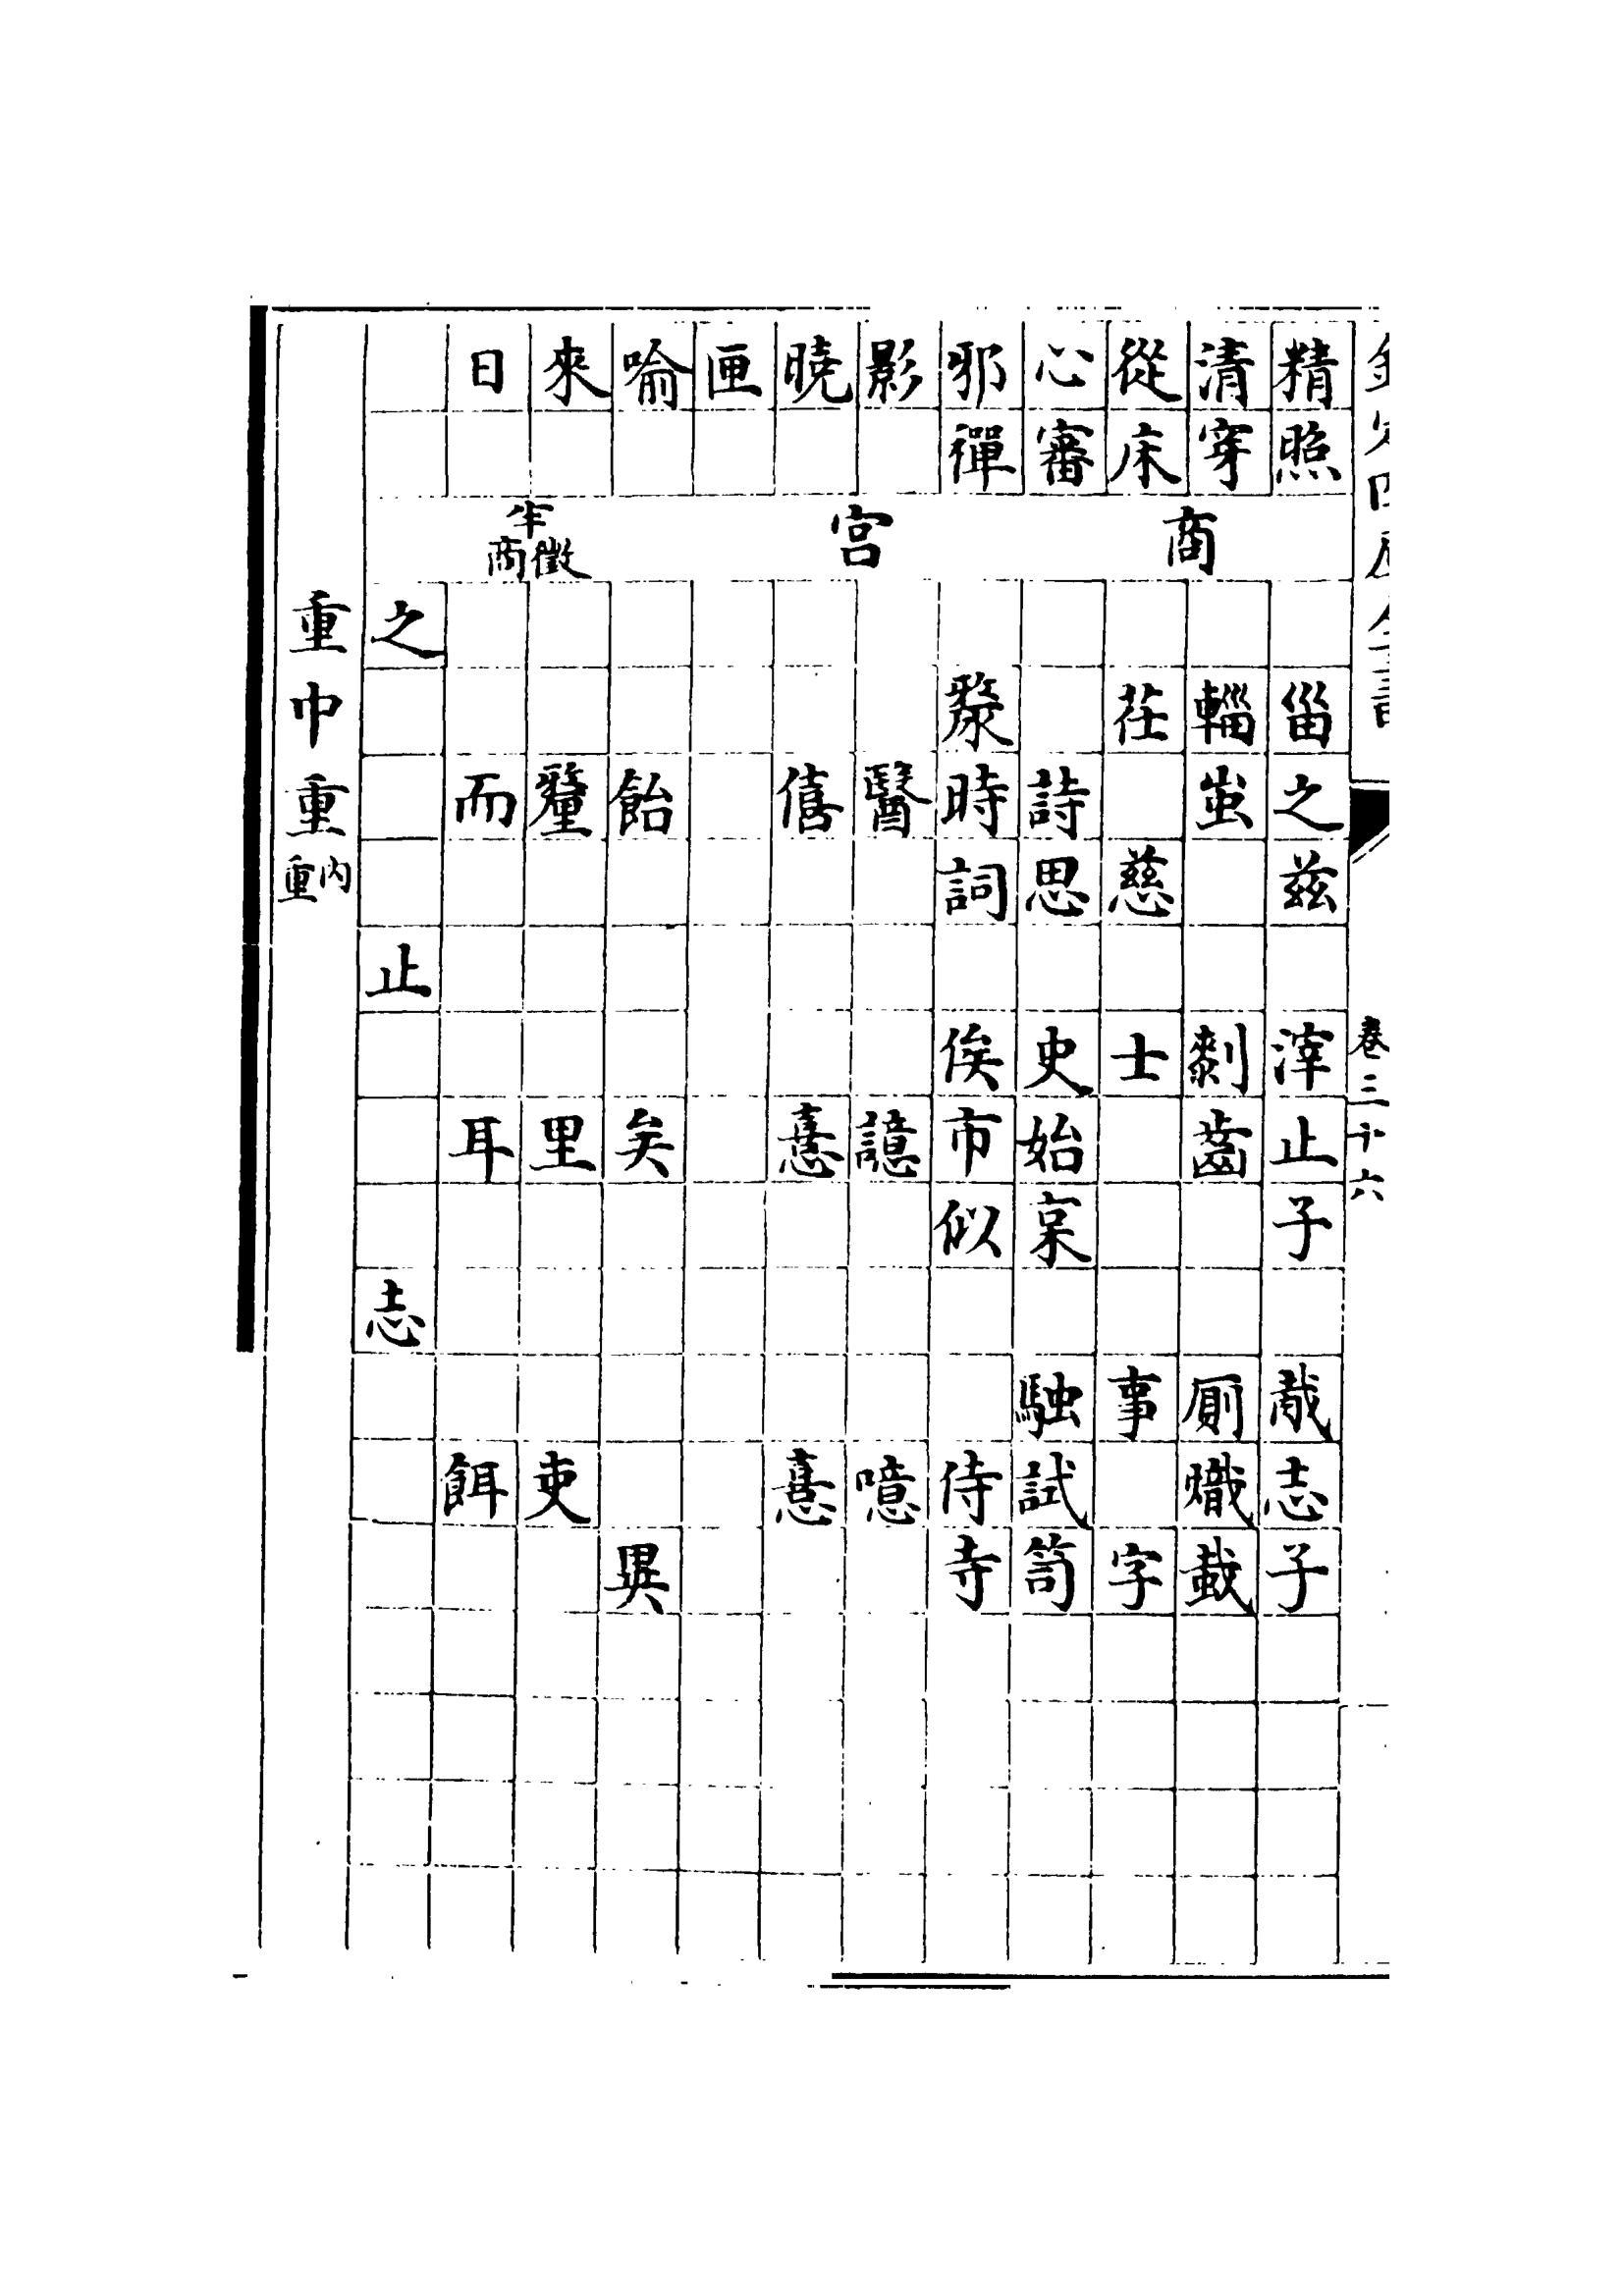 欽定四庫全書
卷三十六
精照 甾之兹 滓止子 胾志子
清穿 輜蚩 剌齒 厠熾蛓
從床 茌慈 士 事字
心審 詩思 史始枲 駛試笥
邪禪 漦時詞 俟市似 侍寺
影 醫 譩 噫
曉 僖 憙 憙
匣
喻 飴 矣 異
來 釐 里 吏
日 而 耳 餌
商
宮
半徵
商
之 止 志
重中重內
重